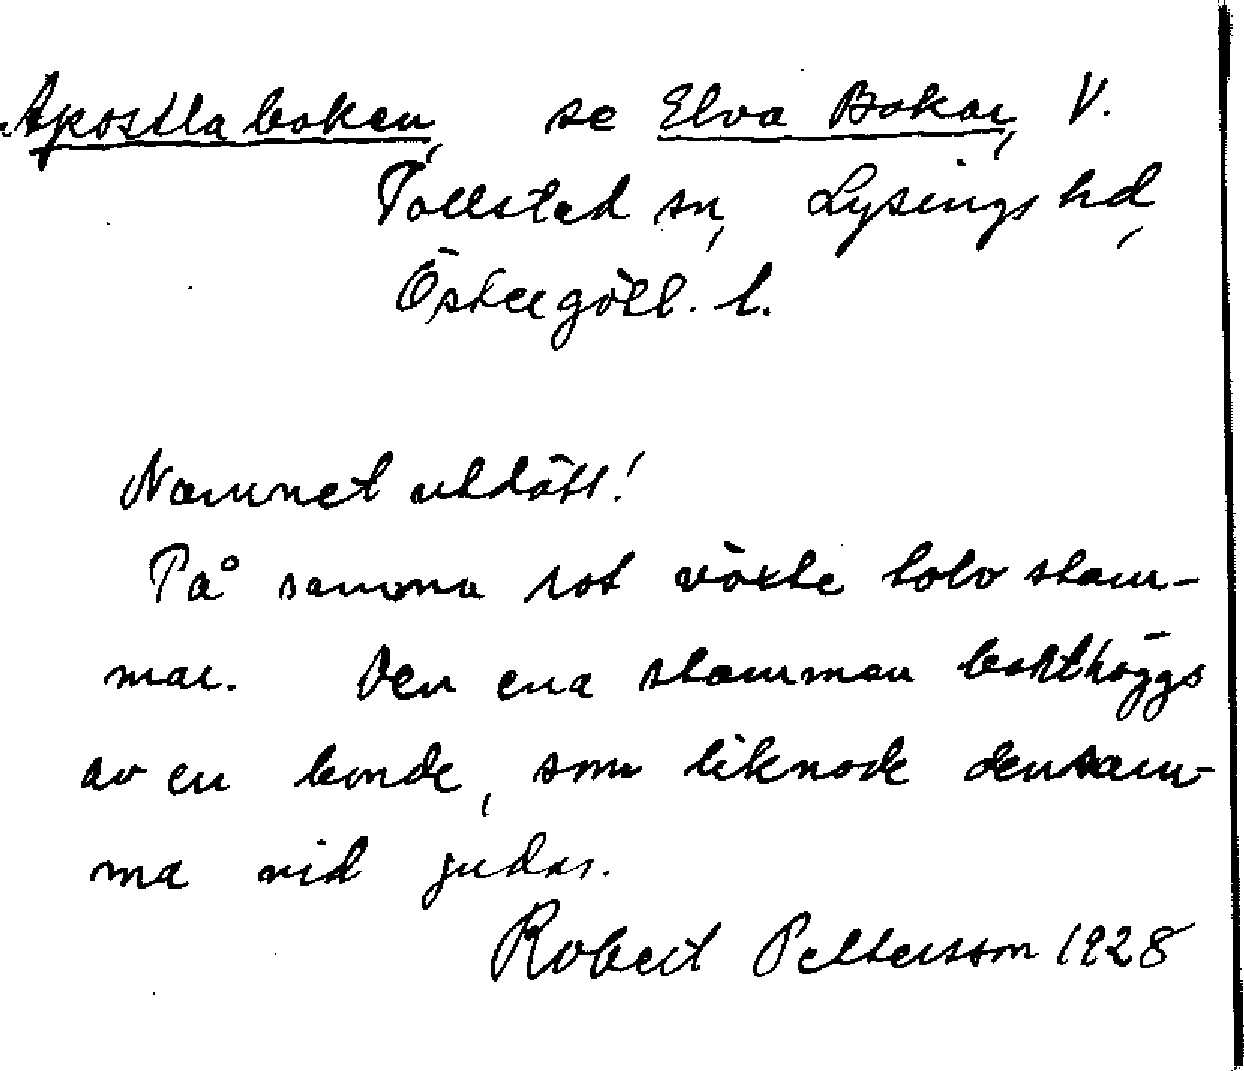 Apostlaboken, se Elva Bokar, V.
Tollstad sn, Lysings hd,
Östergötl. l.
Namnet utdött!
På samma rot växte tolv stam-
mar. Den ena stamman borthöggs
av en bonde, som liknade densam-
ma vid judas.
Robert Pettersson 1928